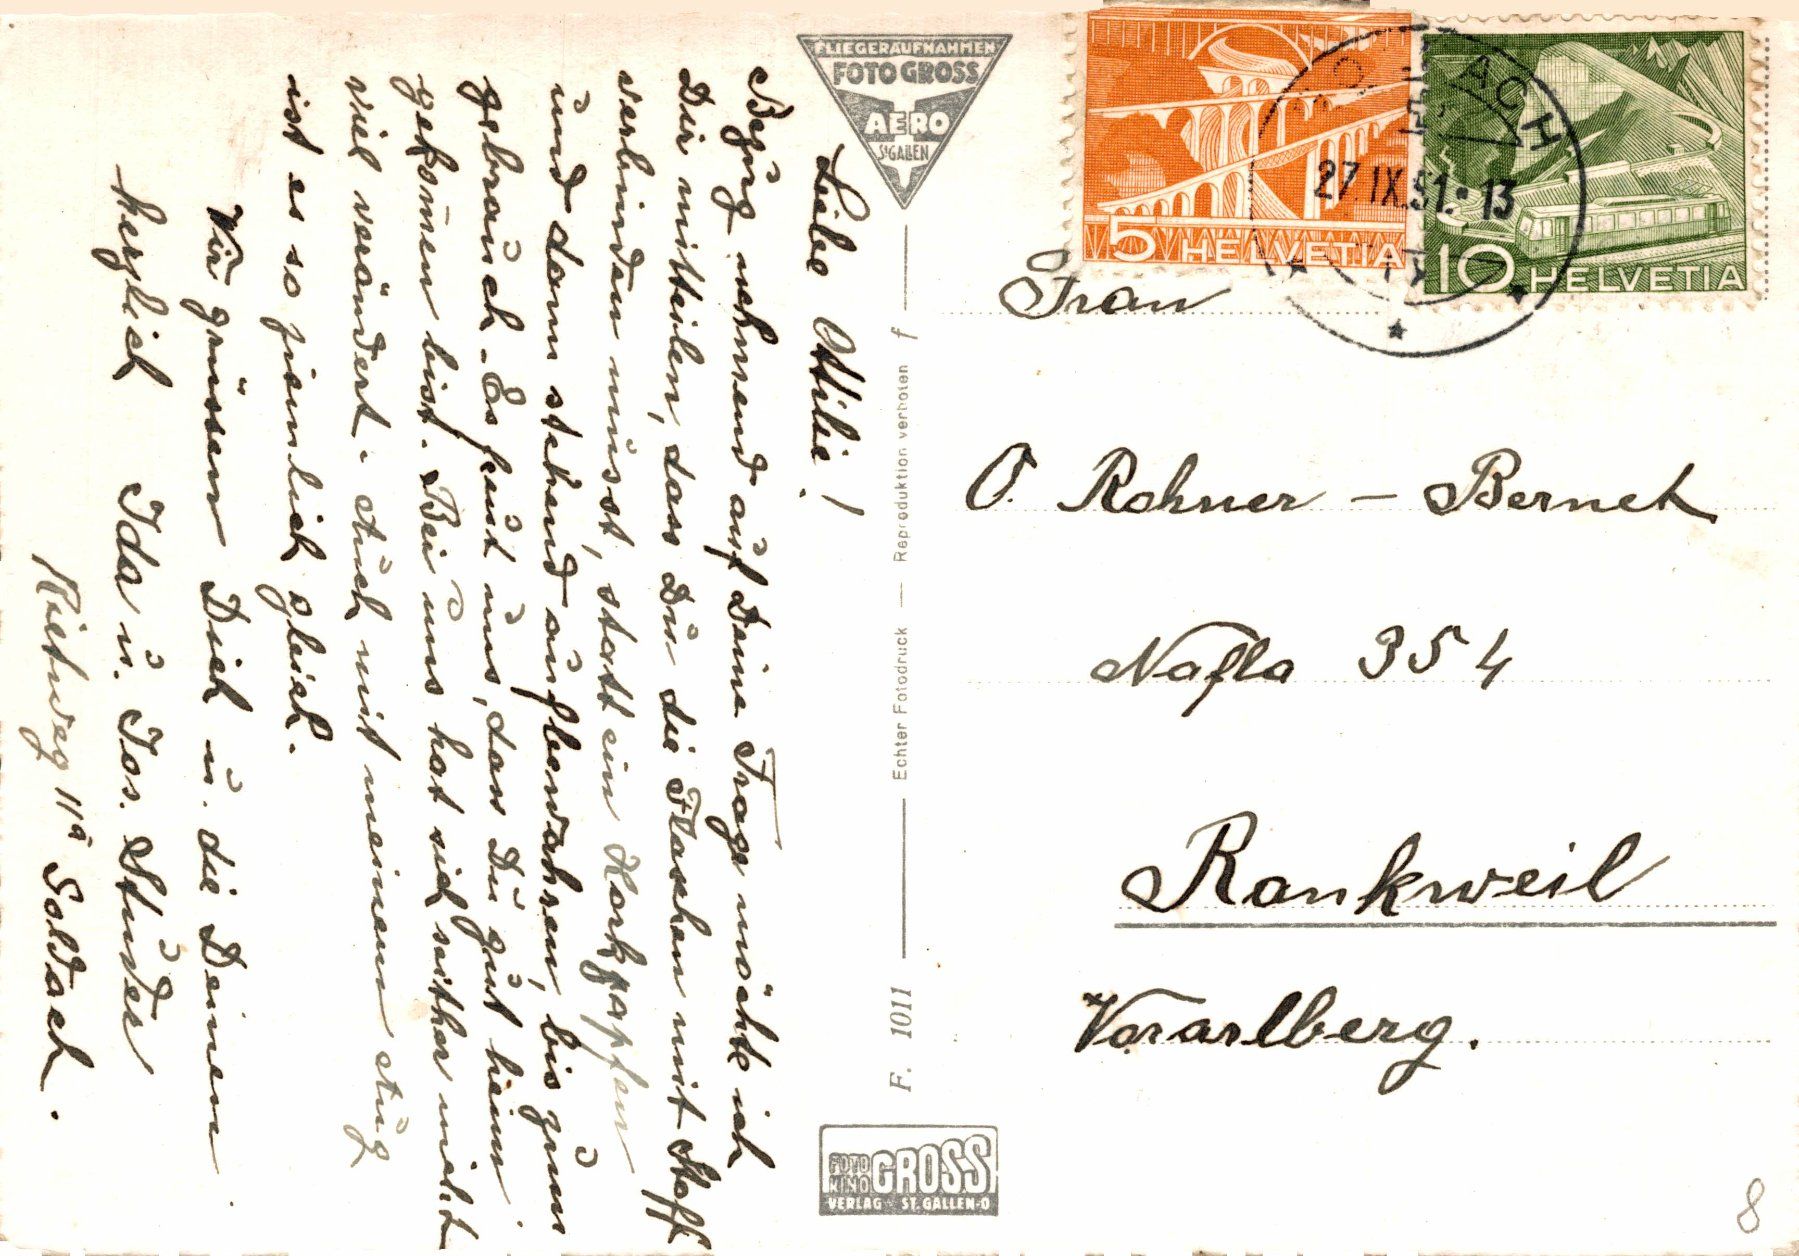 Liebe Ottilie!
Bezug nehmend auf Deine Frage möchte ich
Dir mitteilen, dass Du die Flaschen mit Stoff
verbinden musst, statt ein Korkzapfen
und dann stehend aufbewahren, bis zum
gebrauch. Es freut uns, dass Du gut heim
gekommen bist. Bei uns hat sich seither nicht
viel verändert. Auch mit meinem Aug
ist es so ziemlich gleich.
Wir grüssen Dich u. die Deinen
herzlich Ida u. Jos.
Rietweg 11a Goldach.
FLIEGERAUFNAHMEN
FOTO GROSS
AERO
ST. GALLEN
F. 1011 — Echter Fotodruck — Reproduktion verboten f
FOTO
KINO GROSS
VERLAG ST. GALLEN-O
5 HELVETIA
10 HELVETIA
27.IX.51.13
Frau
O. Rohner - Bernet
Nafla 354
Rankweil
Vorarlberg.
8